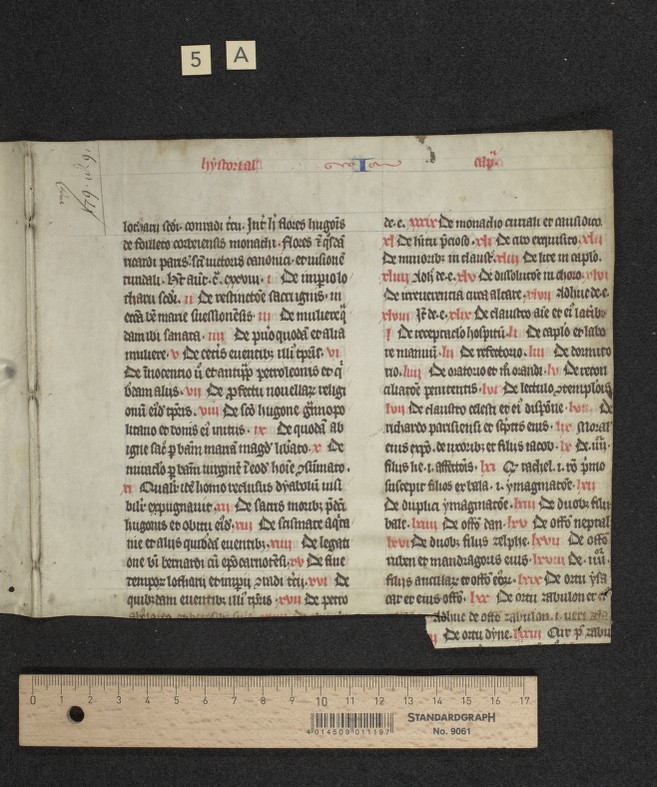 5 A
hystorial I cap
lotharii scdi. conradi tcii. Int hi flores hugois
de folieto corbeiensis monachi. flores
ricardi paris. sci uictoris canonici. et uisione
tundali. Ht aut. c. cxxviii. i De impio lo
tharii scdi. ii De restinctoe sacri ignis. in
ecca be marie suessionesis. iii De muliere
dam ibi sanata. iiii De puo quoda et alia
muliere. v De ceteis euentib illi tpris. vi
De innocentio ii et antipp petro leonis et
bdam aliis. vii De pfectu nouellar religi
onu eid tpris. viii De sco hugone gnnopo
litano et donis ei intus. ix De quoda ab
igne sac p bam maria magd libato. x De
miraclo p bam uirgine i eode hoie osumato.
xi Qualit ide homo reclusus dyabolu uisi
bilit expugnauit. xii De sacris morib pdci
hugonis et obitu eid. xiii De scismate aqta
nie et aliis quibda euentib. xiiii De legati
one bi bernardi cu epo carnotesi. xv De fine
tempor lotharii et impii oradi tcii. xvi De
quibdam euentib illi tpris. xvii De petro
de. e. xxxix De monacho curiali et causidico.
xl De hitu pcioso. xli De cibo exquisito. xlii
De rumorib in claust. xliii De lite in caplo.
xliiii Adh de. e. xlv De dissolucoe in choro. xlvi
De irreuerencia circa altare. xlvii Adhuc de. e.
xlviii It de. e. xlix De claustro aie et ei laterib
l De receptaclo hospitu. li De caplo et labo
re manuu. lii De refectorio. liii De dormito
rio. liiii De oratorio et fr orandi. lv De recon
ciliatoe penitentis. lvi De lectulo
lvii De claustro celesti et ei dispone. lviii De
richardo parisiensi et scptis eius. lix Moral
eius expo. de uxorib et filiis iacob. lx De. iiii.
filiis lie. i. affectois. lxi Cur rachel. i. ro pmo
suscepit filios ex bala. i. ymaginatoe. lxii
De duplici ymaginatoe. lxiii De duob filiis
bale. lxiiii De offo dan. lxv De offo neptal
lxvi De duob filiis zelphe. lxvii De offo
ruben et mandragoris eius. lxviii De. iiii.
filiis ancillar et offo eor. lxix De ortu ysa
car et eius offo. lxx De ortu zabulon et
Adhuc de offo zabulon. i. uere
De ortu dyne. lxxiii Cur p zabu
0 1 2 3 4 5 6 7 8 9 10 11 12 13 14 15 16 17
4 014509 011197
STANDARDGRAPH
No. 9061